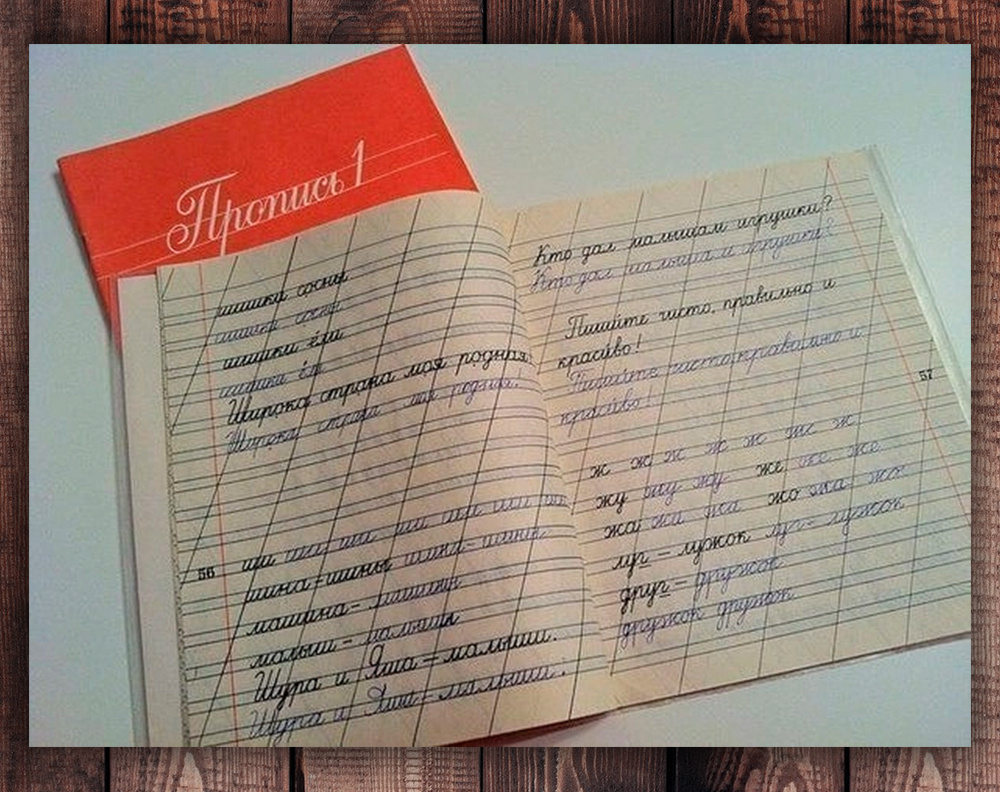 Пропись 1
шишки сосны
шишки сосны
шишки ёли
шишки ёли
Широка страна моя родная!
Широка страна моя родная!
56
ши ши ши ши ши ши
шина - шины шина - шины
машина - машины
малыш - малыши
Шура и Яша - малыши.
Шура и Яша - малыши.
Кто дал малышам игрушки?
Кто дал малышам игрушки?
Пиши́те чисто, правильно и
краси́во!
Пиши́те чисто, правильно и
краси́во!
57
ж ж ж ж ж ж
жу жу жу же же же
жа жа жа жо жа жо
луг - лужок луг - лужок
друг - дружок
дружок дружок